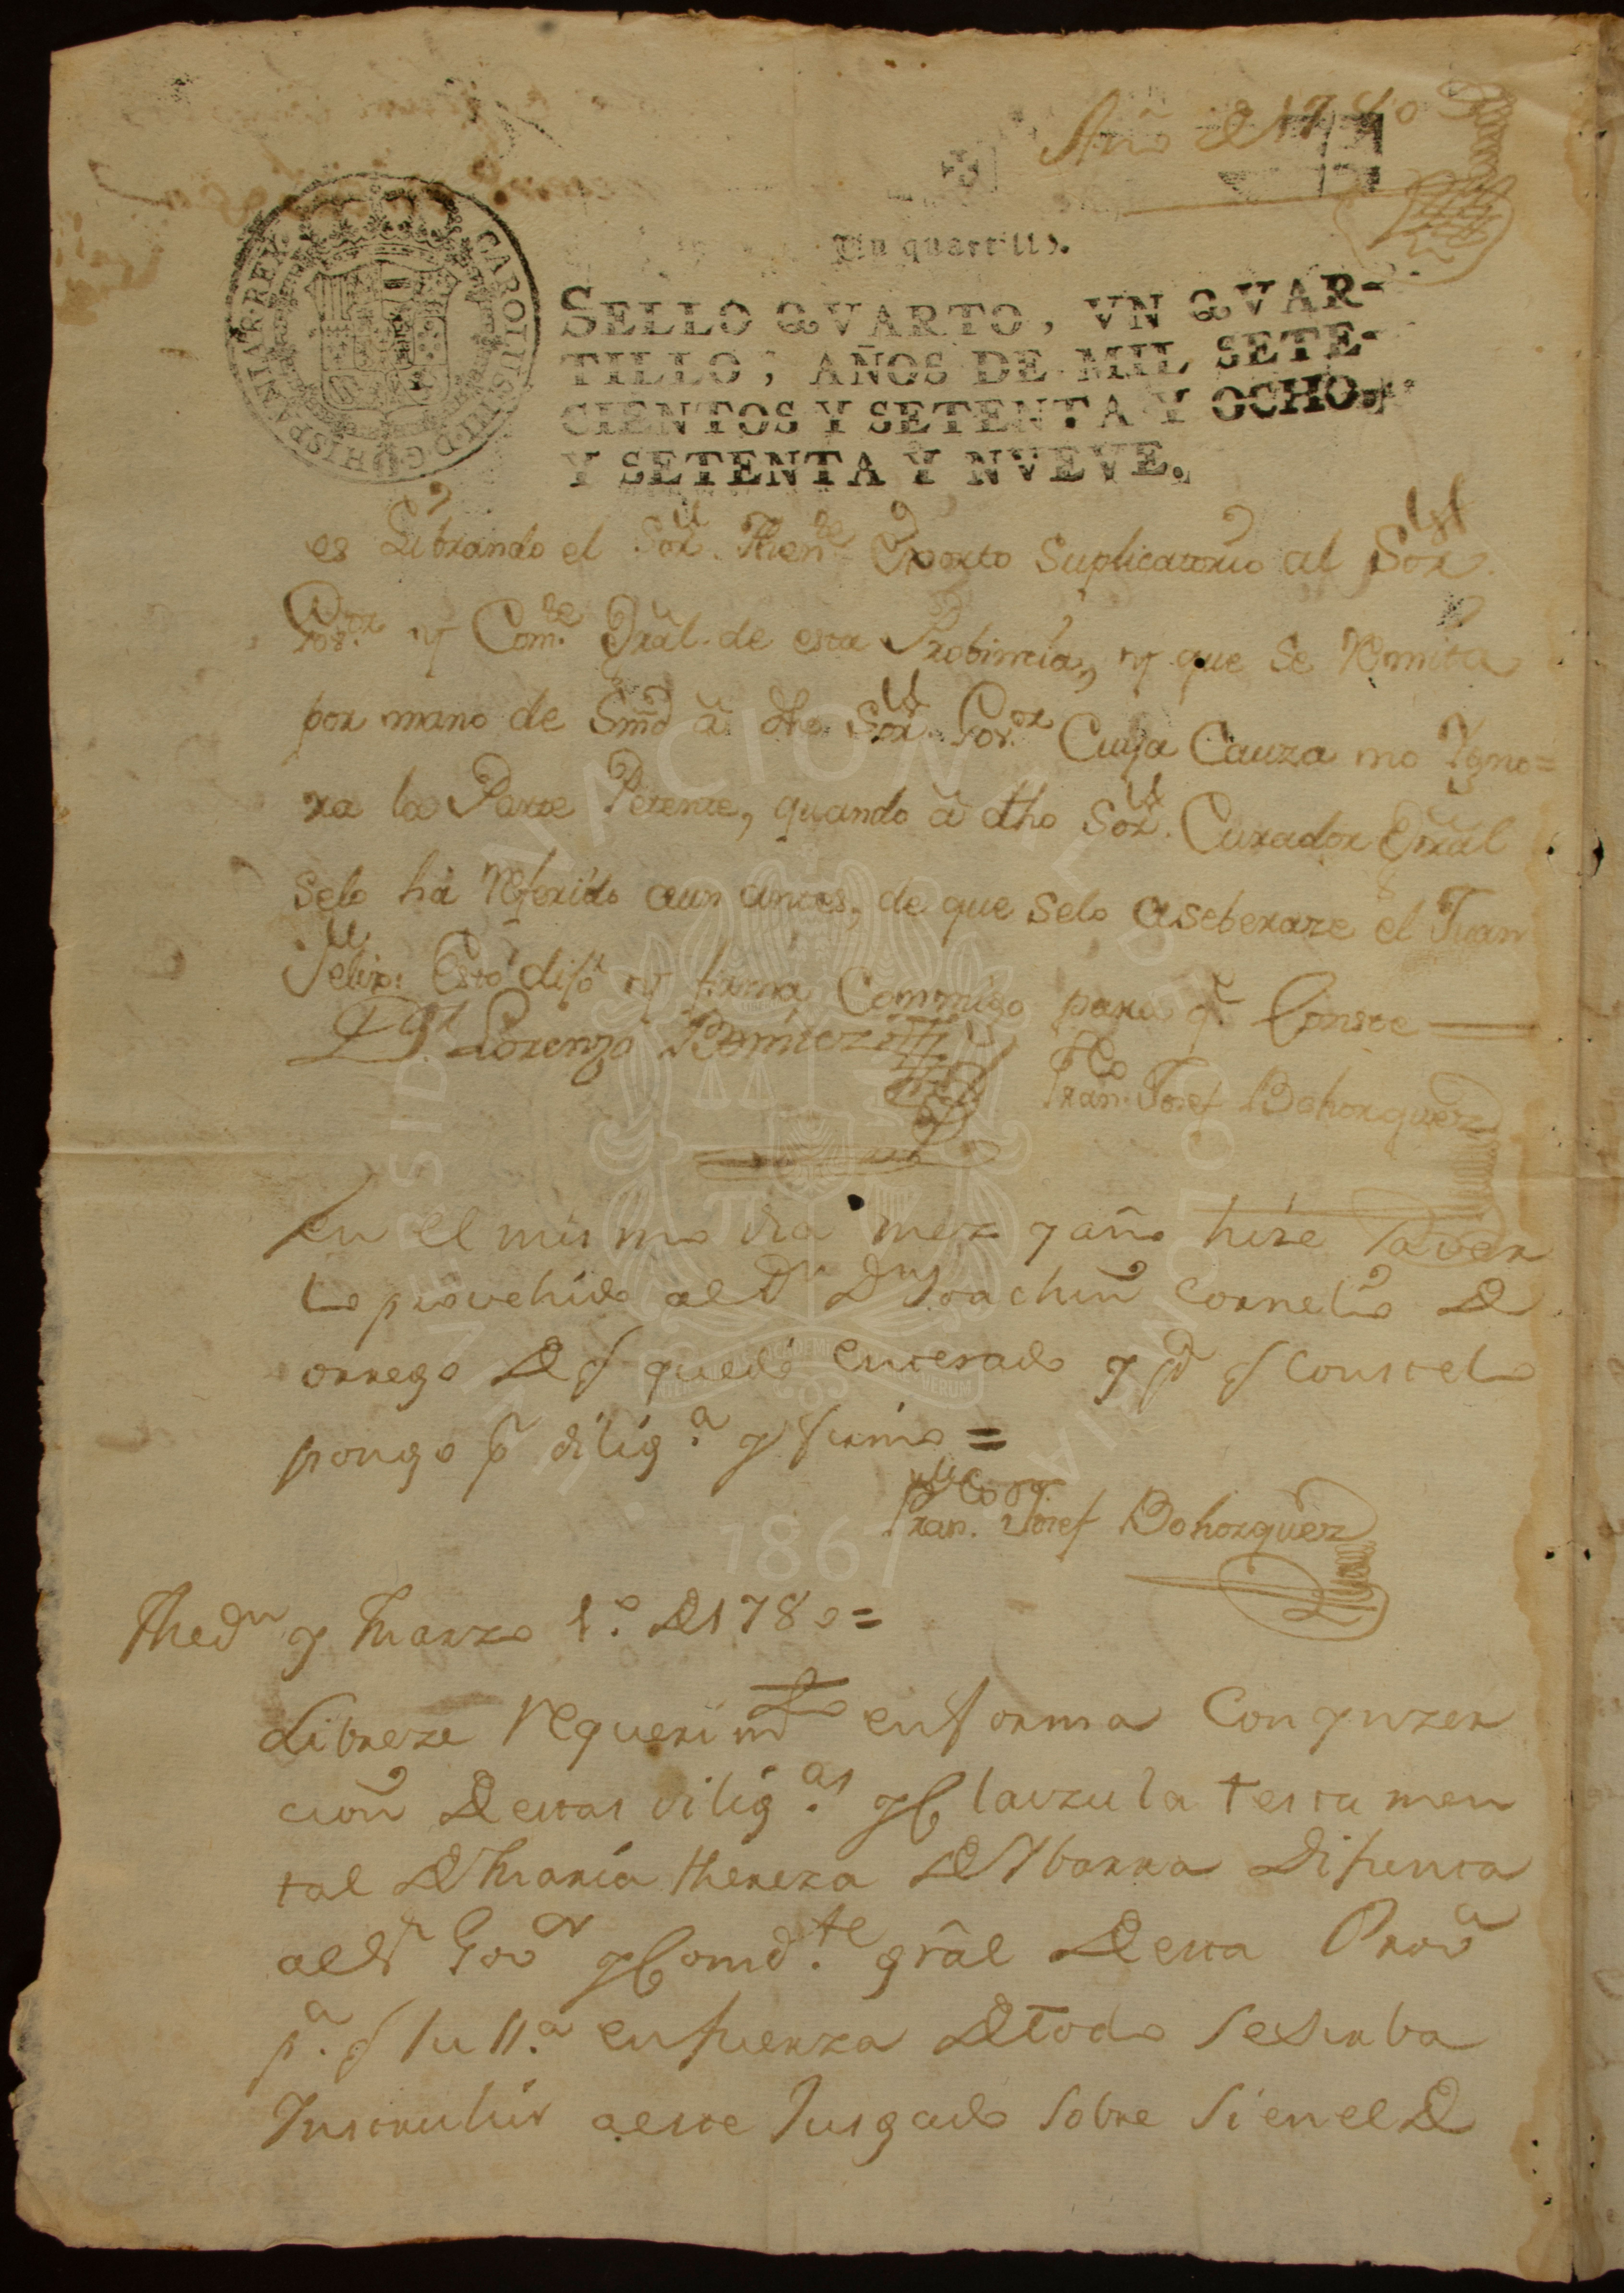 Año de 1780
Un quartillo.
CAROLUS III D. G. HISPANIAR. REX
SELLO QVARTO, VN QVAR-
TILLO, AÑOS DE MIL SETE-
CIENTOS Y SETENTA Y OCHO,
Y SETENTA Y NVEVE.
es Librando el Sor. Thente Exorto Suplicatorio al Sor.
Govor y Comte Gral. de esta Probincia, y que se Remita
por mano de Smd â dho Sor. Govor Cuya Cauza no Ygno=
ra la Parte Petente, quando â dho Sor. Curador Gral
selo há Referido aun antes, de que selo aseberare el Juan
Felix: Esto dijo y firma Conmigo para q. Conste
Dr. Lorenzo Ramirez
Franco. Josef Bohorquez
En el mismo dia mez y año hize saver
lo provehido al Dr Dn Joachin Cornelio de
orrego de q quedó enterado y pa q Conste lo
pongo pr dilig.a y firmo =
Franco. Josef Bohorquez
Medn y Marzo 1.o de 1780=
Librese Requerimto en forma Con ynzer
cion de estas dilig.as y Clauzula testamen
tal de Maria thereza de Ybarra Difunta
al Sr Govor y Comd.te grâl de esta Prova
p.a q su Sa. en fuerza de todo se sirba
Instruhir a este Jusgado sobre si en el de